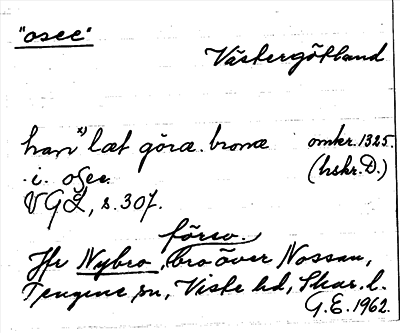 "osee"
Västergötland
han x) læt göræ. bronæ omkr. 1325.
.i. osee. (hskr. D.)
VGL, s. 307.
försv.
Jfr Nybro, bro över Nossan,
Tengene sn, Viste hd, Skar. l.
G.E. 1962.